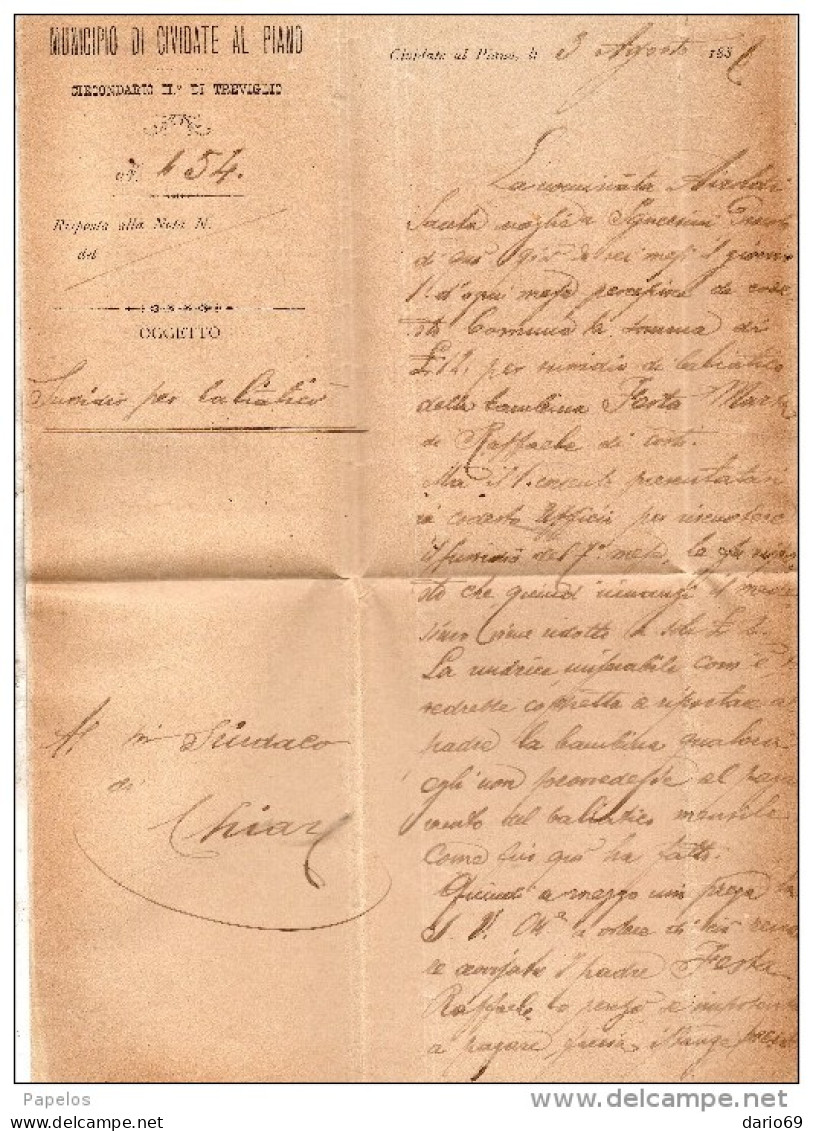 MUNICIPIO DI CIVIDATE AL PIANO
CIRCONDARIO II.° DI TREVIGLIO
N. 454.
Risposta alla Nota N.
del
OGGETTO
Sussidio per baliatico
Al Sindaco
di
Chiari
Cividate al Piano, li 3 Agosto 188
La nominata Airoldi
moglie a
di già sei mesi il giorno
1. d'ogni mese percepiva da code
sto Comune la somma di
£ 12. per sussidio di baliatico
della bambina Festa Maria
di Raffaele di costì.
Ma il 1. corrente presentatasi
in codesto Ufficio per riscuotere
il sussidio del 7.° mese, le fu rispo
sto che quind innanzi il mede
simo viene ridotto a sole £
La nudrice, miserabile com'è,
vedrebbe costretta a riportare al
padre la bambina qualora
egli non provvedesse al paga
mento del baliatico mensile
come già ha fatto.
Quindi a mezzo mio prega la
S. V. a volere di ciò rende
re avvisato il padre Festa
Raffaele, lo e impotente
a pagare,
Papelos
delcampe.net
dario69